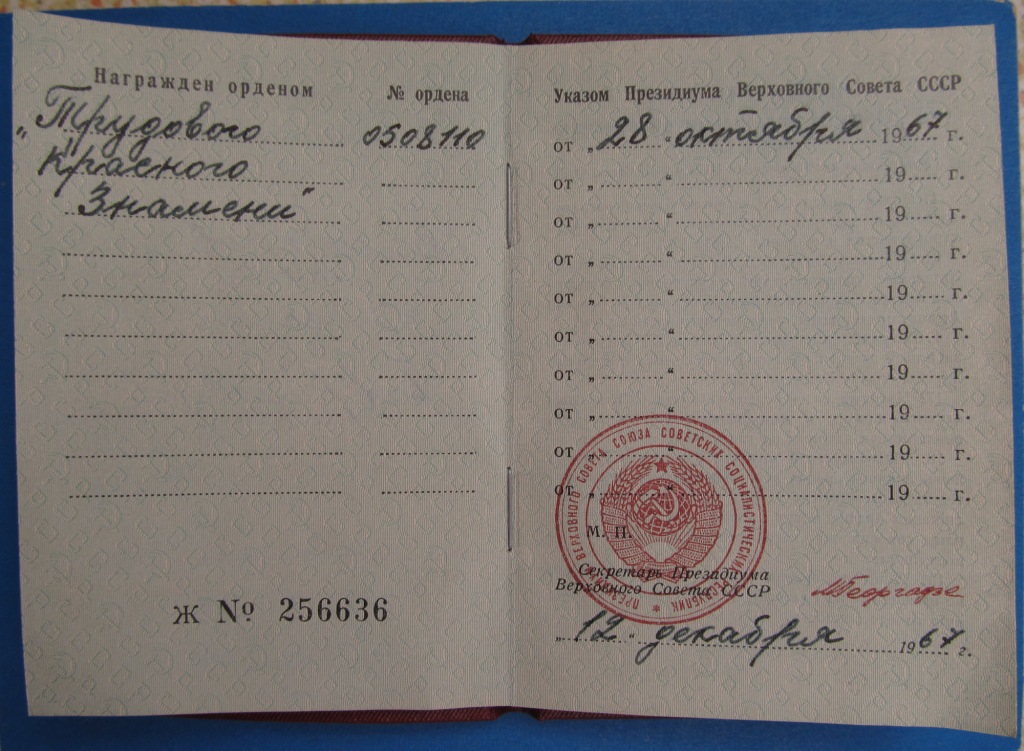 Награжден орденом
№ ордена
„Трудового
0508110
Красного
Знамени“
Ж № 256636
Указом Президиума Верховного Совета СССР
от „ 28 “ октября 1967 г.
от „ “ 19 г.
от „ “ 19 г.
от „ “ 19 г.
от „ “ 19 г.
от „ “ 19 г.
от „ “ 19 г.
от „ “ 19 г.
от „ “ 19 г.
от „ “ 19 г.
ПРЕЗИДИУМ ВЕРХОВНОГО СОВЕТА СОЮЗА СОВЕТСКИХ СОЦИАЛИСТИЧЕСКИХ РЕСПУБЛИК
М. П.
Секретарь Президиума
Верховного Совета СССР
МГеоргадзе
„ 12 “ декабря 1967 г.